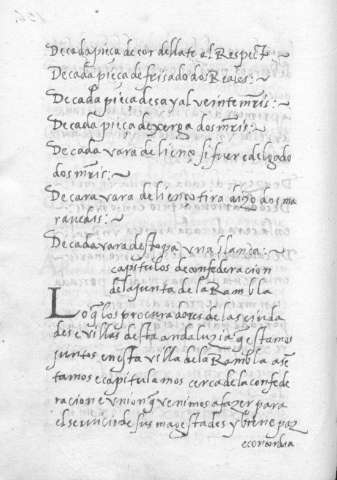 De cada pieça de cordellate al Respecto
De cada pieça de frisado dos Reales:
De cada pieça de sayal veinte mrs:
De cada pieça de xerga dos mrs:
De cada vara de lienço si fuere delgado
dos mrs:
De cara vara de lienço tira dos ma
raueais:
De cada vara de stopa vna blanca:
capitulos de confederacion
de la junta de la Rambla
Lo q̃ los procuradores de las ciuda
des e villas desta andaluzia q̃ estamos
juntos en esta villa de la Rambla asẽ
tamos e capitulamos cerca de la confede
racion e vnion q̃ venimos a fazer para
el seruicio de sus magestades y bien e paz